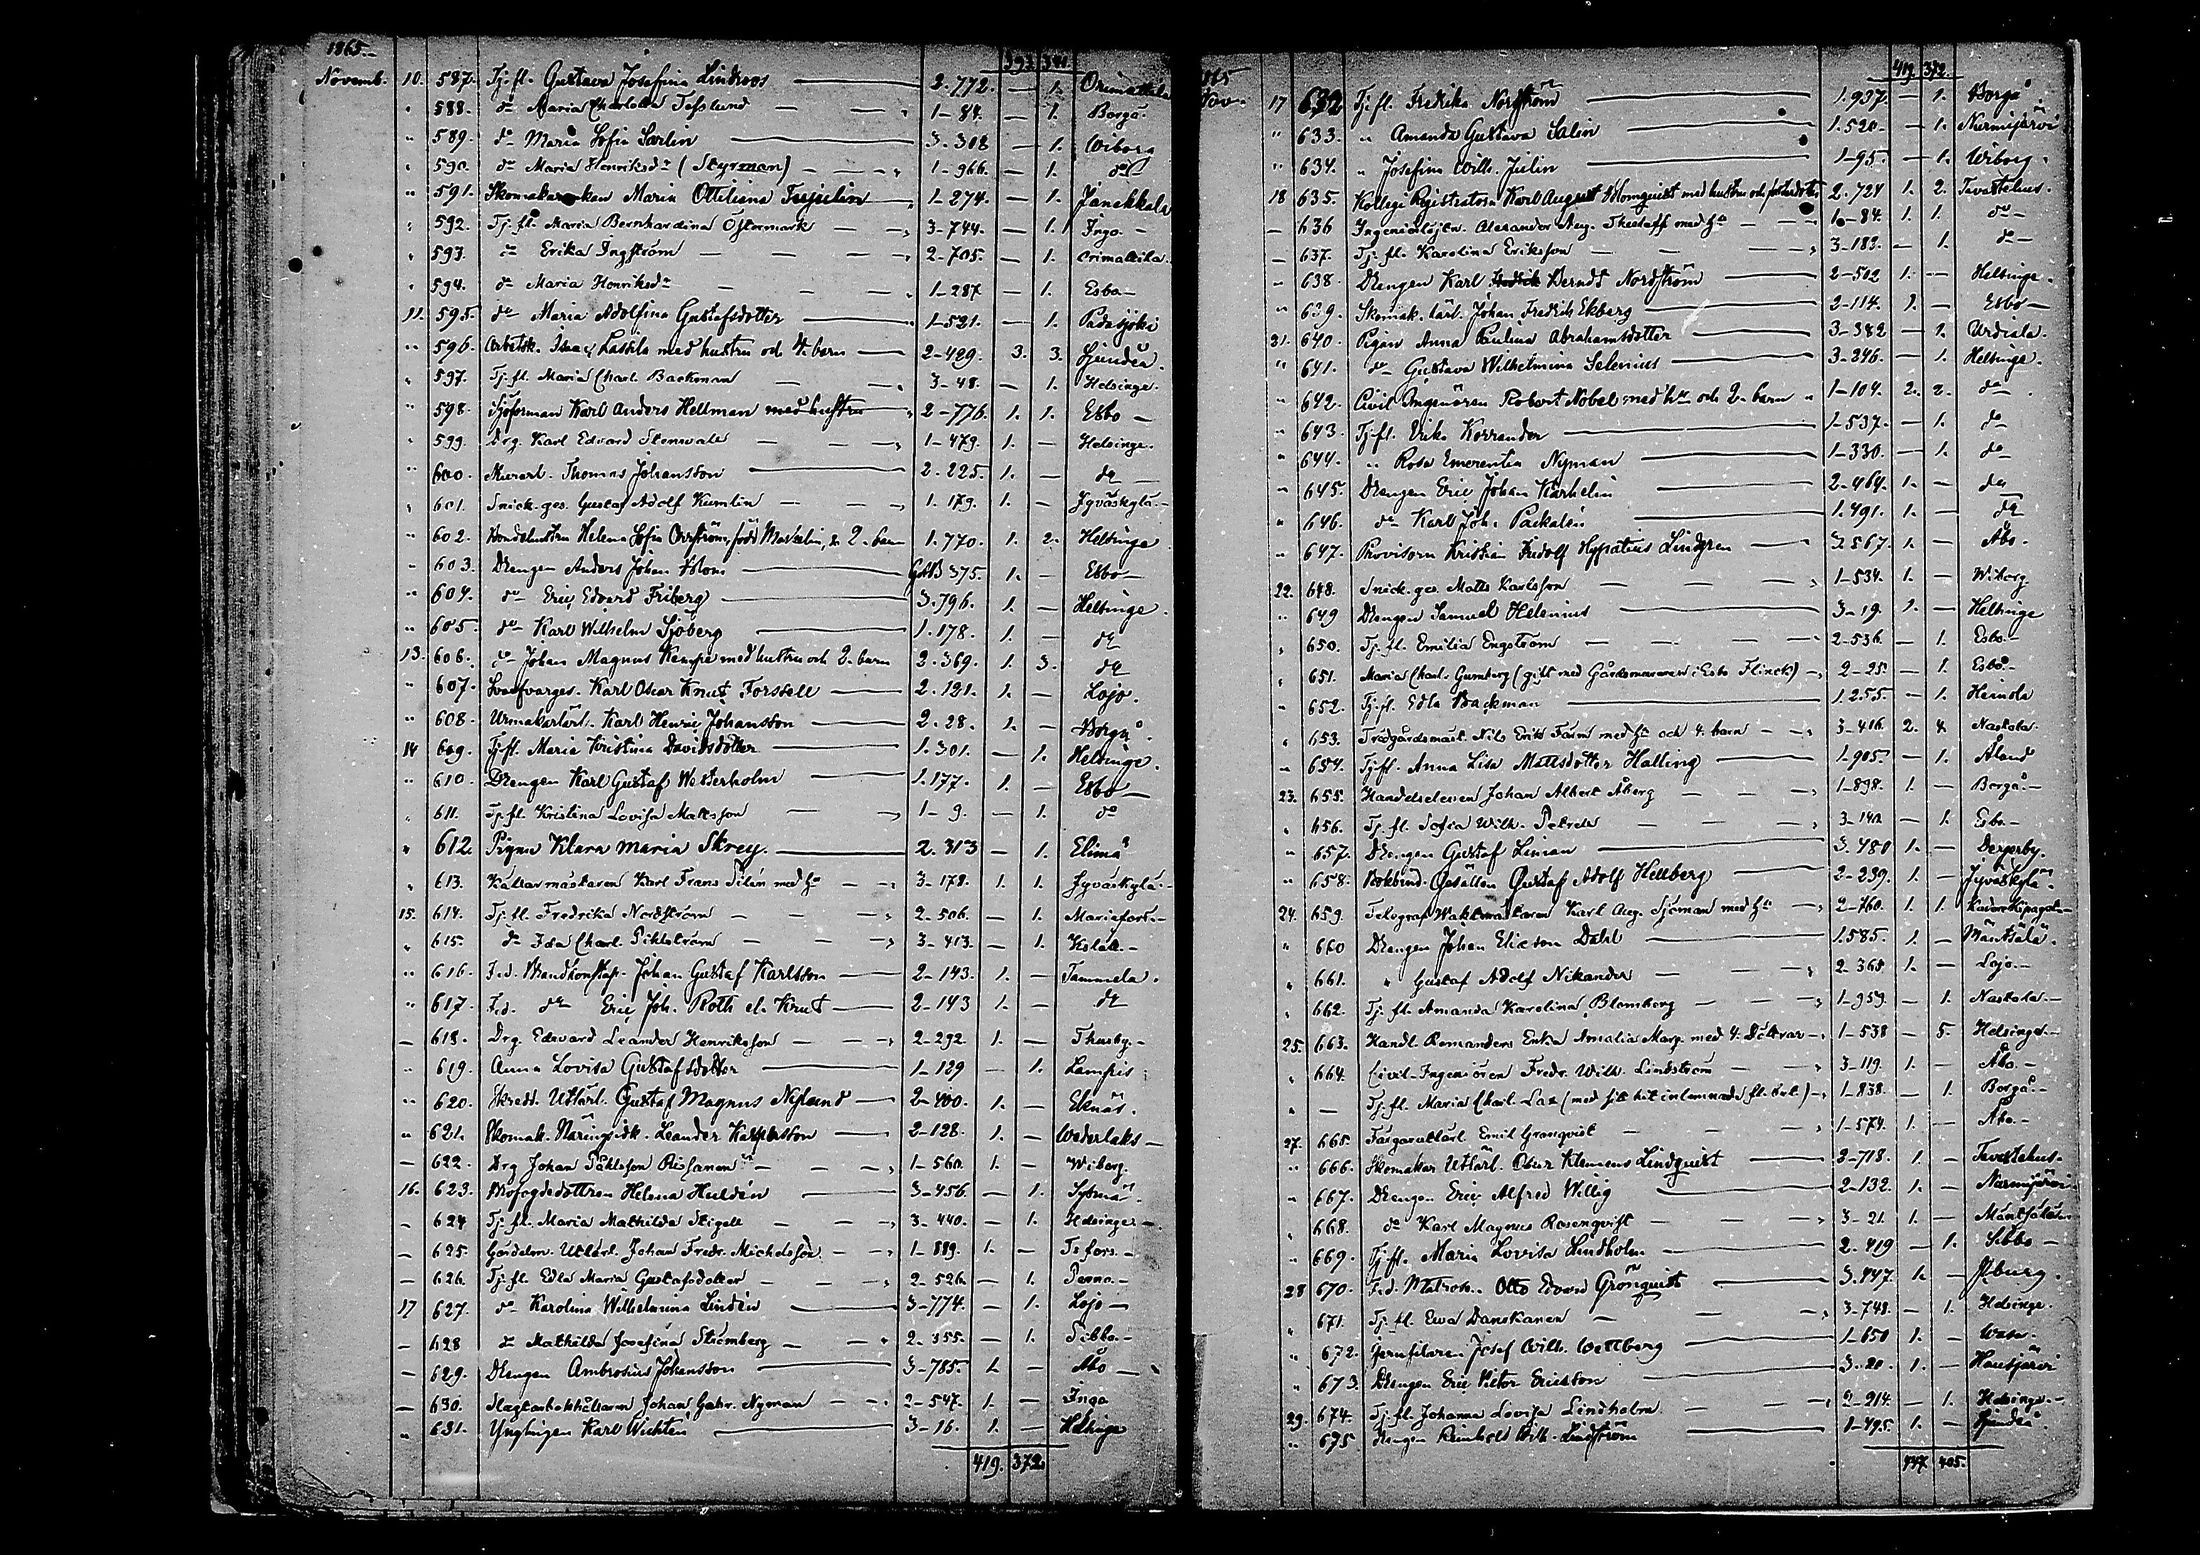 1865.
393 341
Novemb. 10. 587. Tj. fl. Gustava Josefina Lindroos 2-772. — 1. Orimattila
" 588. do Maria Charlotta 1-84. — 1. Borgå.
" 589. do Maria Sofia Sarlin 3-308 — 1. Wiborg
" 590. do Maria Henriksdr (Styrman) 1-966. — 1. do
" 591. Maria Ottiliana 1-274. — 1. Janakkala
" 592. Tj. fl. Maria Bernhardina Östermark 3-744. — 1. Ingo.
" 593. do Erika Ingström 2-705. — 1. Orimattila.
" 594. do Maria Henriksdr 1-287 — 1. Esbo
11. 595. do Maria Adolfina Gustafsdotter 1-521. — 1. Padasjoki
" 596. Arbetsk. Isaac Lassila med hustru och 4. barn 2-429. 3. 3. Sjundeå.
" 597. Tj. fl. Maria Charl. Backman 3-48. — 1. Helsinge.
" 598. Karl Anders Hellman med hustru 2-776. 1. 1. Esbo
" 599. Drg. Karl Edvard Stenwall 1-479. 1. — Helsinge.
" 600. Murarl. Thomas Johansson 2-225. 1. — do
" 601. Snick. ges. Gustaf Adolf Kumlin 1-179. 1. — Jyväskylä.
" 602. Helena Sofia född 2. barn 1-770. 1. 2. Helsinge
" 603. Drengen Anders Johan Blom 375. 1. — Esbo
" 604. do Eric Edvard Friberg 3-796. 1. — Helsinge.
" 605. do Karl Wilhelm Sjöberg 1.178. 1. — do
13. 606. do Johan Magnus Kempe med hustru och 2. barn 2.369. 1. 3. do
" 607. Karl Oscar Knut Forssell 2.121. 1. — Lojo.
" 608. Urmakarlärl. Karl Henric Johansson 2.28. 1. — Borgå.
14 609. Tj. fl. Maria Kristina Davidsdotter 1.301. — 1. Helsinge.
" 610. Drengen Karl Gustaf Westerholm 1.177. 1. — Esbo
" 611. Tj. fl. Kristina Lovisa Matsson 1-9. — 1. do
" 612. Pigan Klara Maria Skrey. 2.313 — 1. Elimä
" 613. Källarmästaren Karl Frans med hu 3-178. 1. 1. Jyväskylä.
15. 614. Tj. fl. Fredrika Nordström 2-506. — 1. Mariefors.
" 615. do Ida Charl. Pihlström 3-413. — 1.
" 616. F.d. Johan Gustaf Karlsson 2-143. 1. — Tammela.
" 617. F.d. do Eric Joh. Roth el. Knut 2-143 1. — do
618. Drg. Edvard Leander Henriksson 2-292. 1. — Thusby.
" 619. Anna Lovisa Gustafsdotter 1-129 — 1. Lampis
" 620. Skredd. Utlärl. Gustaf Magnus Nylund 2-400. 1. — Eknäs.
" 621. Skomak. Leander 2-128. 1. — Wederlaks
622. Drg Johan Påhlsson 1-560. 1. — Wiborg.
16. 623. Helena Huldén 3-456. — 1. Sysmä.
624 Tj. fl. Maria Mathilda Stigell 3-440. — 1. Helsinge.
625. Utlärl. Johan Fredr. Michelsson 1-889. 1. — Tsfors.
626. Tj. fl. Edla Maria Gustafsdotter 2-526. — 1. Perno.
17 627. do Karolina Wilhelmina Lindén 3-774. — 1. Lojo
628 do Mathilda Josefina Strömberg 2-355. — 1. Sibbo.
629. Drengen Ambrosius Johansson 3-785. 1. — Åbo
630. Johan Gabr. Nyman 2-547. 1. — Ingo
" 631. Ynglingen Karl Wichtén 3-16. 1. — Helsinge
419. 372.
1865
419. 372.
Nov. 17 632 Tj. fl. Fredrika Nordström 1.937. — 1. Borgå
" 633. " Amanda Gustava Salin 1.520. — 1. Nurmijärvi
" 634. " Josefina Wilh. Julin 1-95. — 1. Wiborg.
18 635. Kollegi Registratorn Karl August Blomquist med hustru och 2.724 1. 2. Tavastehus.
636 Alexander Aug. med hu 1-84. 1. 1. do
637. Tj. fl. Karolina Eriksson 3-183. — 1. do
638. Drengen Karl Berndt Nordström 2-502 1. — Helsinge.
639. Skomak. lärl. Johan Fredrik Ekberg 2-114. 1. — Esbo
21. 640. Pigan Anna Paulina Abrahamsdotter 3-382 — 1. Urdiala.
" 641. do Gustava Wilhelmina Selenius 3-246. — 1. Helsinge.
" 642. Civil Ingenören Robert Nobel med hu och 2. barn 1-104. 2. 2. do
" 643. Tj. fl. Ulrika Korrander 1-537. — 1. do
" 644. " Rosa Emerentia Nyman 1-330. — 1. do
" 645. Drengen Eric Johan Karhelin 2-464. 1. — do
" 646. do Karl Joh. Packalén 1.491. 1. — do
" 647. Provisorn Kristian Rudolf Hypatius Lindgren 3.567. 1. — Åbo.
22. 648. Snick. ges. Matts Karlsson 1-534. 1. — Wiborg
" 649 Drengen Samuel Helenius 3-19. 1. — Helsinge
" 650. Tj. fl. Emilia Engström 2-536. — 1. Esbo.
" 651. Maria Charl. Gumberg (gift med i Esbo Flinck) 2-25. — 1. Esbo.
" 652. Tj. fl. Edla Backman 1.255. — 1. Heinola
" 653. Trädgårdsmäst. Nils Erik Farm med hu och 4. barn 3-416. 2. 4. Nastola.
" 654. Tj. fl. Anna Lisa Mattsdotter Halling 1-905. — 1. Åland
23. 655. Handelseleven Johan Albert Åberg 1-898. 1. — Borgå.
" 656. Tj. fl. Sofia Wilh. Petrell 3-140. — 1. Esbo.
" 657. Drengen Gustaf Liman 3.480 1. — Degerby.
" 658. Bokbind. Gesällen Gustaf Adolf Hellberg 2-239. 1. — Jyväskylä.
24. 659. Telegraf Waktmästaren Karl Aug. Sjöman med hu 2-760. 1. 1.
" 660 Drengen Johan Ericson Dahl 1.585. 1. — Mäntsälä.
" 661. " Gustaf Adolf Nikander 2-365 1. — Lojo.
" 662. Tj. fl. Amanda Karolina Blomberg 1-959. — 1. Nastola.
25. 663. Handl. Enka Amalia med 4. Döttrar 1-538 — 5. Helsinge.
" 664. Civil-Ingeniören Fredr. Wilh. Lindström 3-119. 1. — Åbo.
" — Tj. fl. Maria Charl. (med sitt hit inlemnade fl. bet.) 1-838. — 1. Borgå.
27. 665. Färgareutlärl. Emil Granqvist 1-574. 1. — Åbo.
" 666. Skomakar Utlärl. Oscar Klemens Lindquist 3-718. 1. — Tavastehus.
" 667. Drengen Eric Alfred Willig 2-132. 1. — Nurmijärvi
" 668. do Karl Magnus Rosenqvist 3-21. 1. — Mäntsälä
" 669. Tj. fl. Maria Lovisa Lindholm 2.419 — 1. Sibbo
28 670. F.d. Matrosen Otto Edvard Grönquist 3.447. 1. —
" 671. Tj. fl. Ewa Danskanen 3-748. — 1. Helsinge.
" 672. Josef Wilh. Wettberg 1-650 1. — Wasa.
" 673. Drengen Eric Victor Ericsson 3.20. 1. — Hausjärvi
29. 674. Tj. fl. Johanna Lovisa Lindholm 2-214. — 1. Helsinge.
" 675. Drengen Reinhold Wilh. Lindström 1-495. 1. — Sjundeå
447. 405.